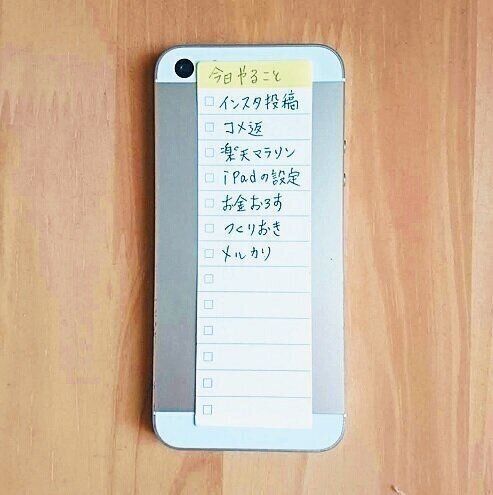 今日やること
インスタ投稿
コメ返
楽天マラソン
iPadの設定
お金おろす
つくりおき
メルカリ